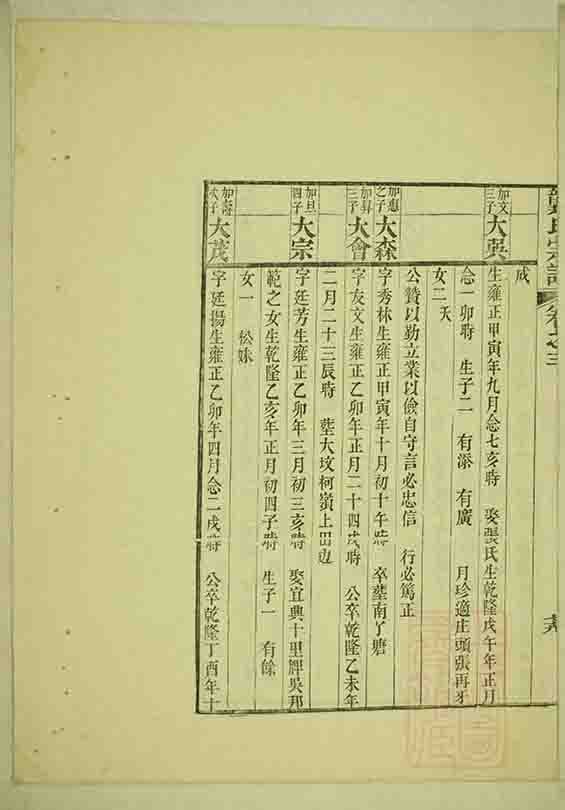 氏宗譜 卷之三
成
加文三子 大吳 生雍正甲寅年九月念七亥時 娶張氏生乾隆戊午年正月
念 卯時 生子二 有添 有廣 月珍適庄頭張再牙
女二 夭
公贊以勤立業以儉自守言必忠信 行必篤正
加惠之子 大森 字秀林生雍正甲寅年十月初十午時 卒塟南了塘
加昇三子 大會 字友文生雍正乙卯年正月二十四戌時 公卒乾隆乙未年
二月二十三辰時 塟大坟柯嶺上田边
加旦四子 大宗 字廷芳生雍正乙卯年三月初三亥時 娶宜興十里牌吳邦
範之女生乾隆乙亥年正月初四子時 生子一 有餘
女一 松妹
加壽次子 大茂 字廷揚生雍正乙卯年四月念二戌時 公卒乾隆丁酉年十